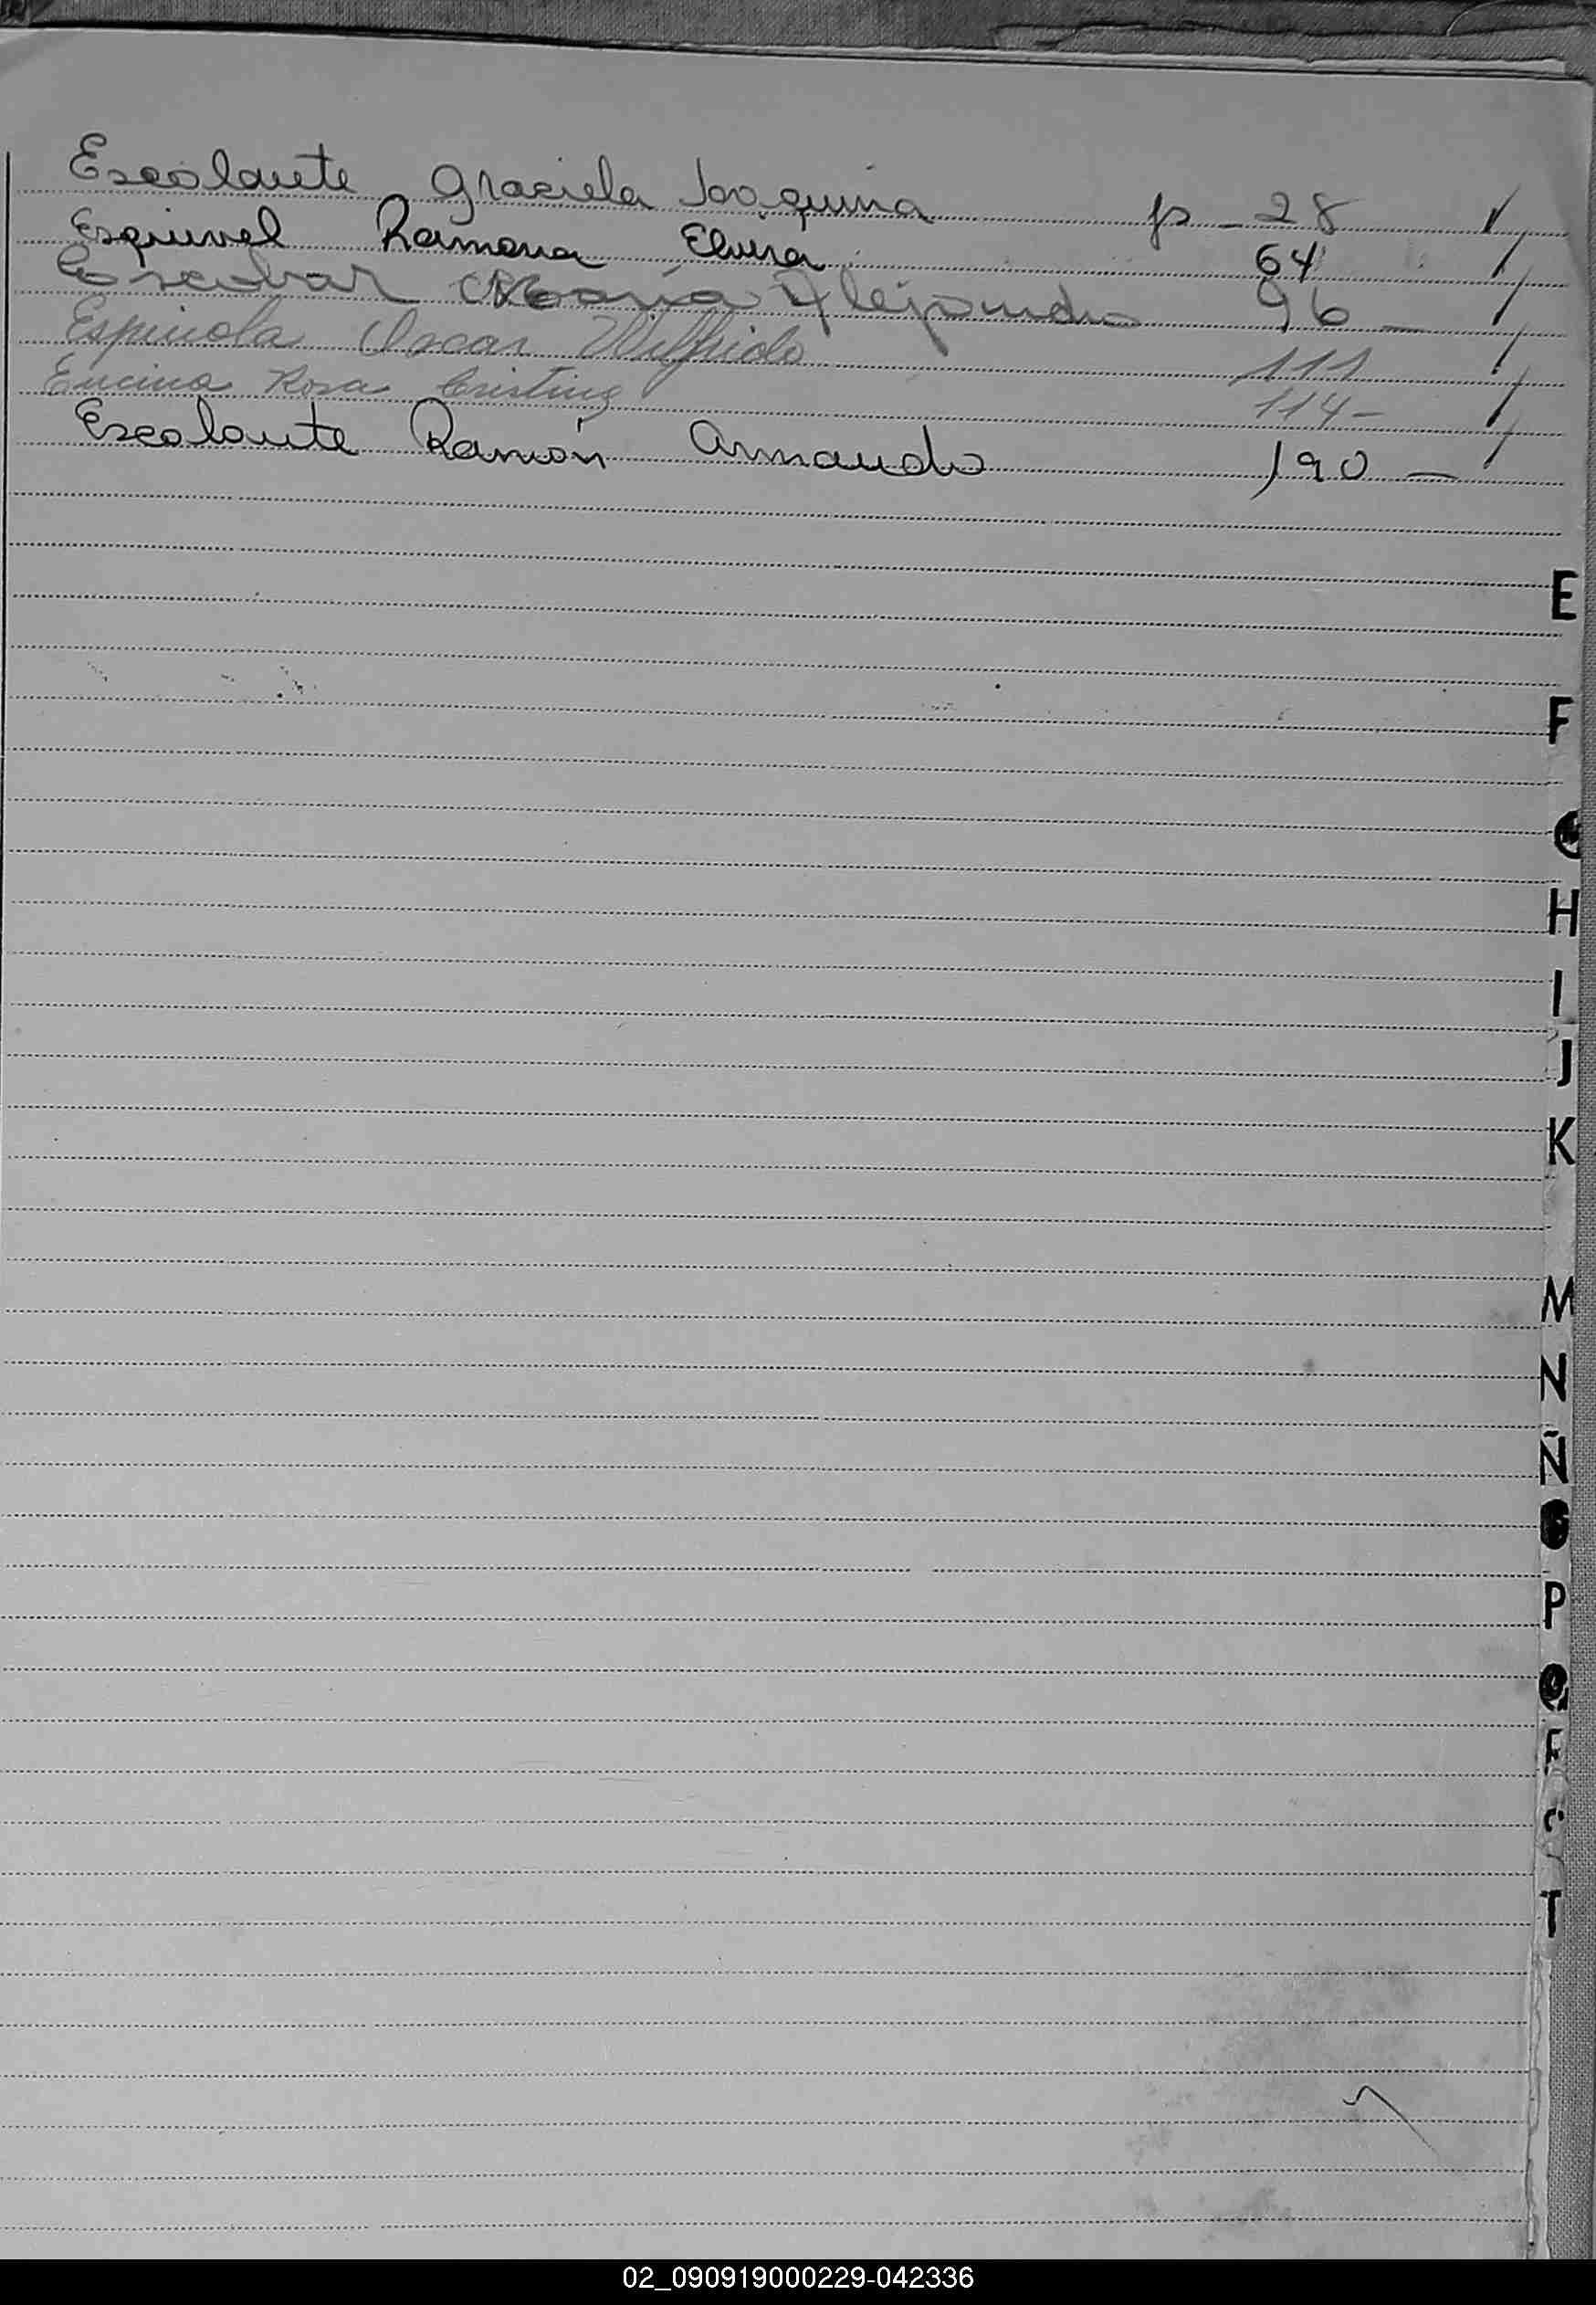 Escolante Graciela Joaquina fs - 28
Esquivel Ramona Elvira 64
Escobar María Alejandro 96 -
Espinola Oscar Wilfrido 111
Encina Rosa Cristina 114 -
Escolante Ramón Armando 190 -
E
F
H
I
J
K
M
N
Ñ
P
Q
T
02_090919000229-042336